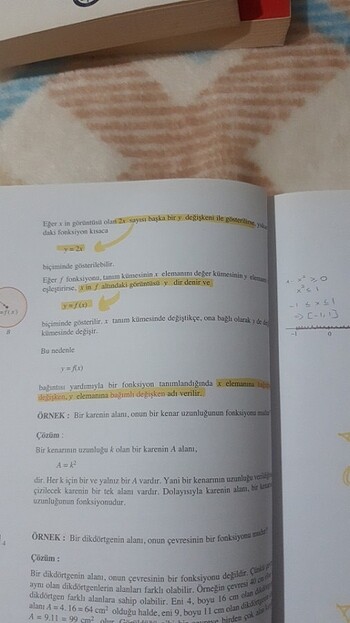 Eğer x in görüntüsü olan 2x sayısı başka bir y değişkeni ile gösterilirse,
daki fonksiyon kısaca
y = 2x
biçiminde gösterilebilir.
Eğer f fonksiyonu, tanım kümesinin x elemanını değer kümesinin y
eşleştirirse, x in f altındaki görüntüsü y dir denir ve
y = f(x)
biçiminde gösterilir. x tanım kümesinde değiştikçe, ona bağlı olarak y de
kümesinde değişir.
Bu nedenle
y = f(x)
bağıntısı yardımıyla bir fonksiyon tanımlandığında x elemanına
değişken, y elemanına bağımlı değişken adı verilir.
ÖRNEK : Bir karenin alanı, onun bir kenar uzunluğunun fonksiyonu
Çözüm :
Bir kenarının uzunluğu k olan bir karenin A alanı,
A = k²
dir. Her k için bir ve yalnız bir A vardır. Yani bir kenarının uzunluğu
çizilecek karenin bir tek alanı vardır. Dolayısıyla karenin alanı, bir
uzunluğunun fonksiyonudur.
ÖRNEK : Bir dikdörtgenin alanı, onun çevresinin bir fonksiyonu
Çözüm :
Bir dikdörtgenin alanı, onun çevresinin bir fonksiyonu değildir.
aynı olan dikdörtgenlerin alanları farklı olabilir. Örneğin çevresi 40 cm
dikdörtgen farklı alanlara sahip olabilir. Eni 4, boyu 16 cm olan
alanı A = 4.16 = 64 cm² olduğu halde, eni 9, boyu 11 cm olan
A = 9.11 = 99 cm²
x² ≥ 0
x² ≤ 1
-1 ≤ x ≤ 1
→ [-1,1]
-1 0